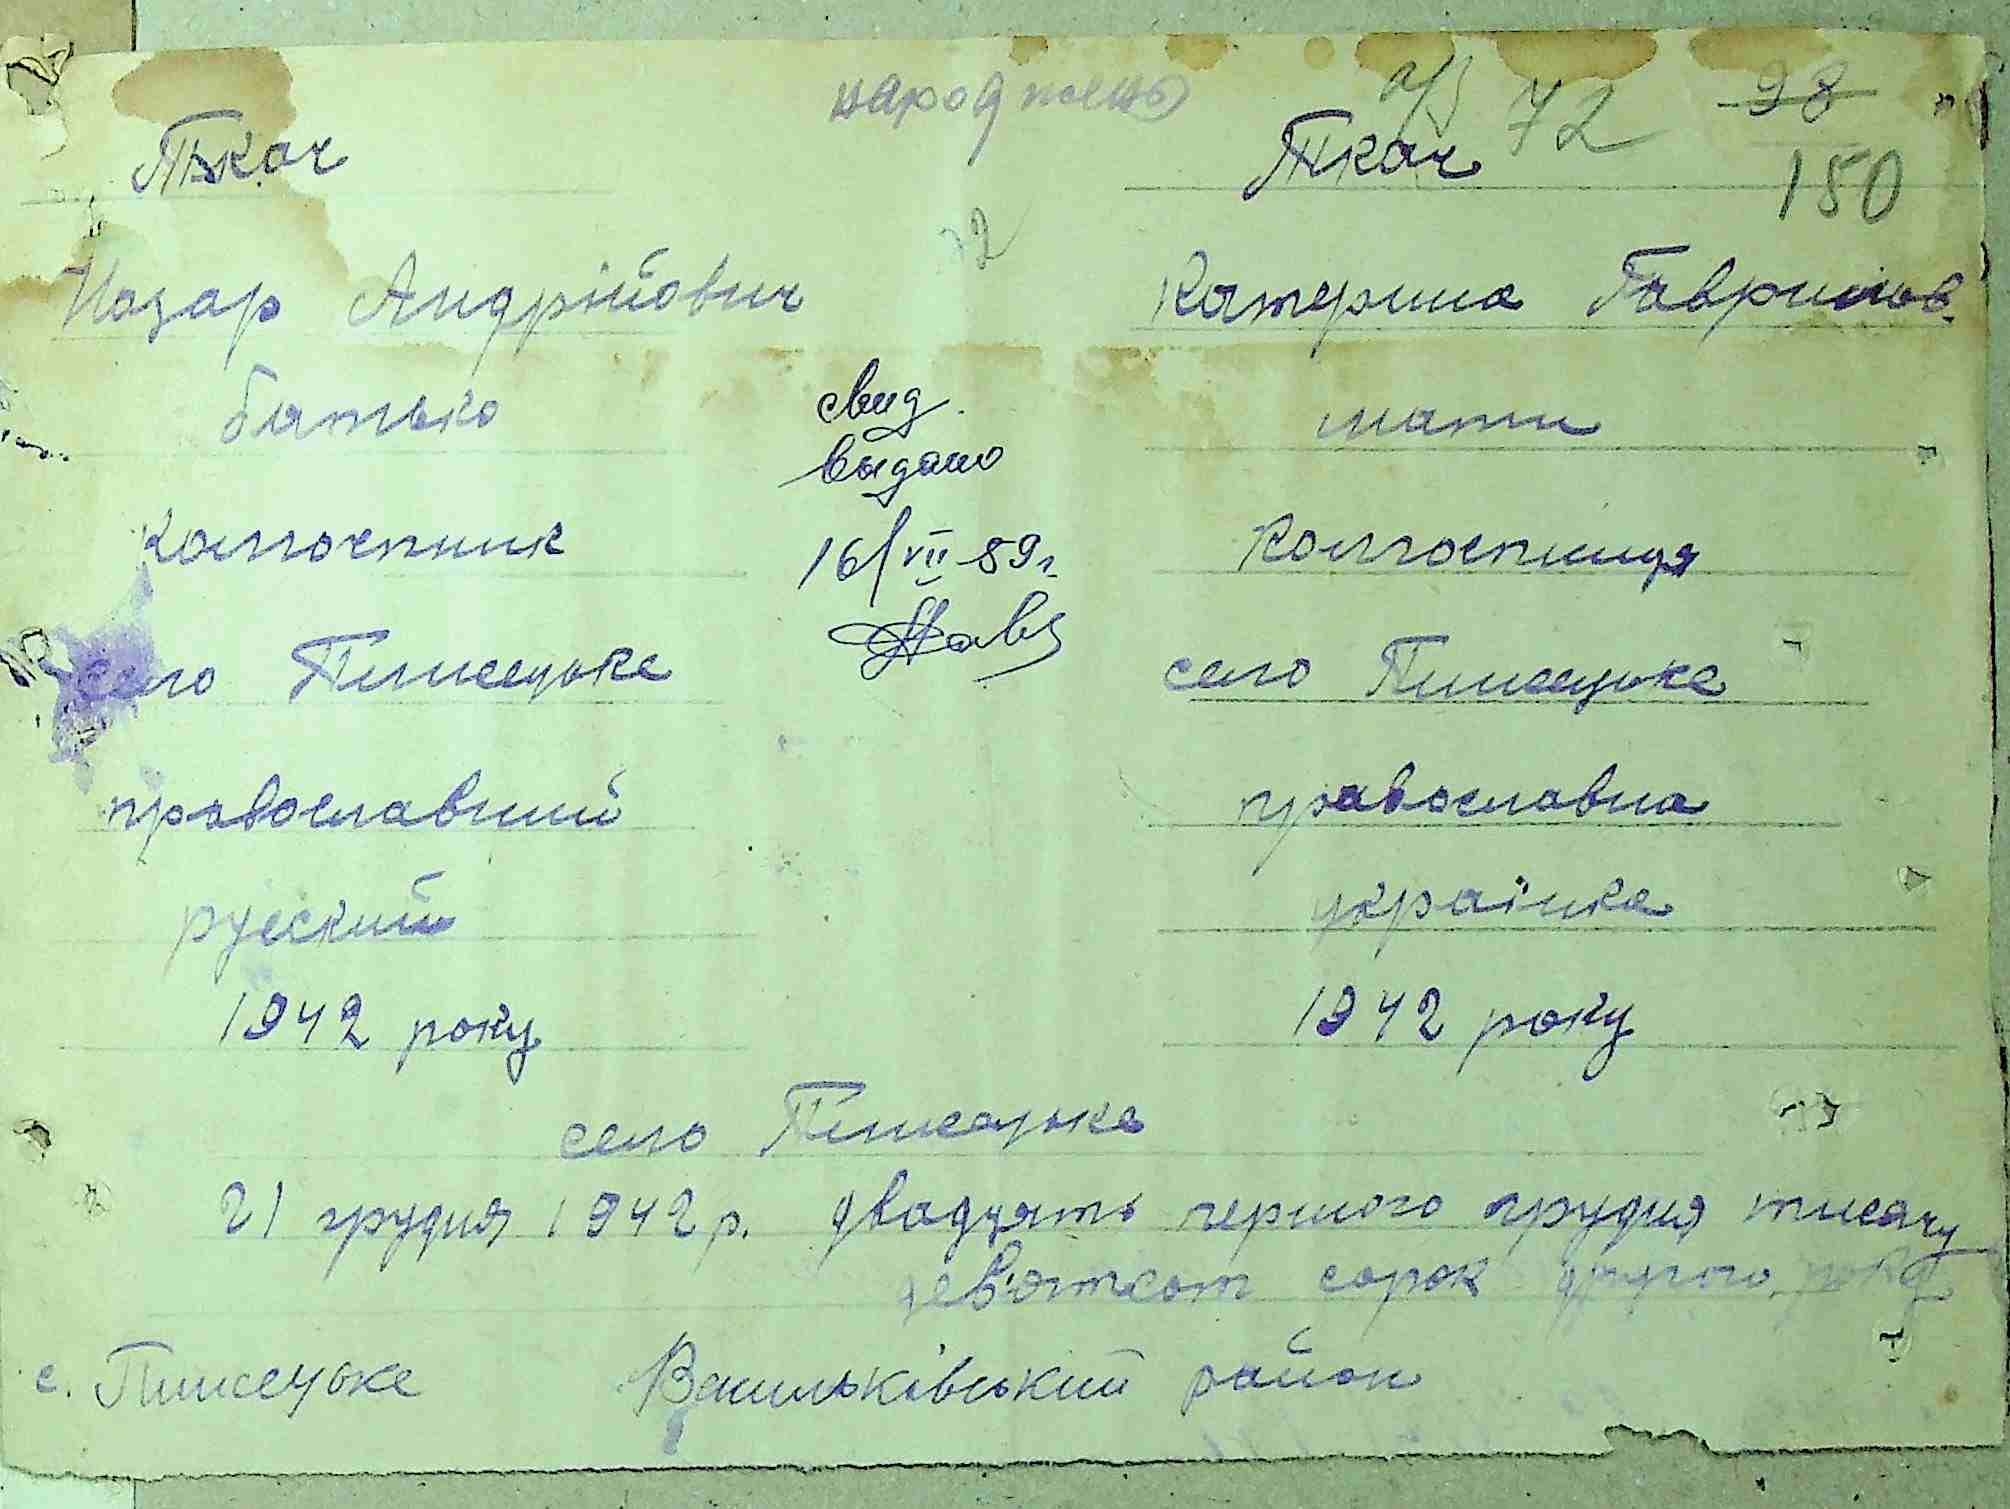 народжень а/з 72 98
150
Ткач Ткач
72
Назар Андрійович Катерина Гаврилов.
батько свид. мати
выдано
колгоспник 16/VII-89г. колгоспниця
село Плисецьке село Плисецьке
православний православна
руский українка
1942 року 1942 року
село Плисецьке
21 грудня 1942 р. двадцять першого грудня тисячу
девятсот сорок другого року
с. Плисецьке Васильківський район